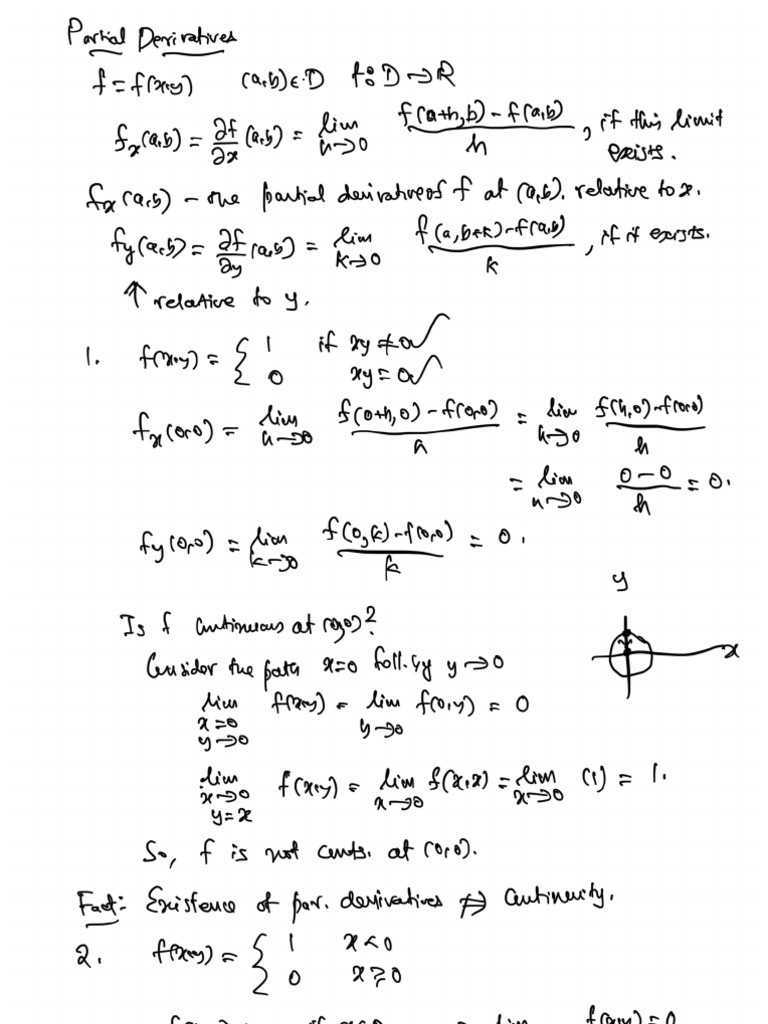 Partial Derivatives
f = f(x,y) (a,b) ∈ D f: D → R
f_x(a,b) = ∂f/∂x (a,b) = lim_{h→0} (f(a+h,b) - f(a,b))/h , if this limit exists.
f_x(a,b) - the partial derivative of f at (a,b), relative to x.
f_y(a,b) = ∂f/∂y (a,b) = lim_{k→0} (f(a,b+k) - f(a,b))/k , if it exists.
↑ relative to y.
1. f(x,y) = { 1 if xy ≠ 0 ✓
0 xy = 0 ✓
f_x(0,0) = lim_{h→0} (f(0+h,0) - f(0,0))/h = lim_{h→0} (f(h,0) - f(0,0))/h
= lim_{h→0} (0-0)/h = 0.
f_y(0,0) = lim_{k→0} (f(0,k) - f(0,0))/k = 0.
y
Is f continuous at (0,0)?
x
Consider the path x=0 foll. by y→0
lim_{x=0, y→0} f(x,y) = lim_{y→0} f(0,y) = 0
lim_{x→0, y=x} f(x,y) = lim_{x→0} f(x,x) = lim_{x→0} (1) = 1.
So, f is not conts. at (0,0).
Fact: Existence of par. derivatives ⇏ Continuity.
2. f(x,y) = { 1 x < 0
0 x ≥ 0